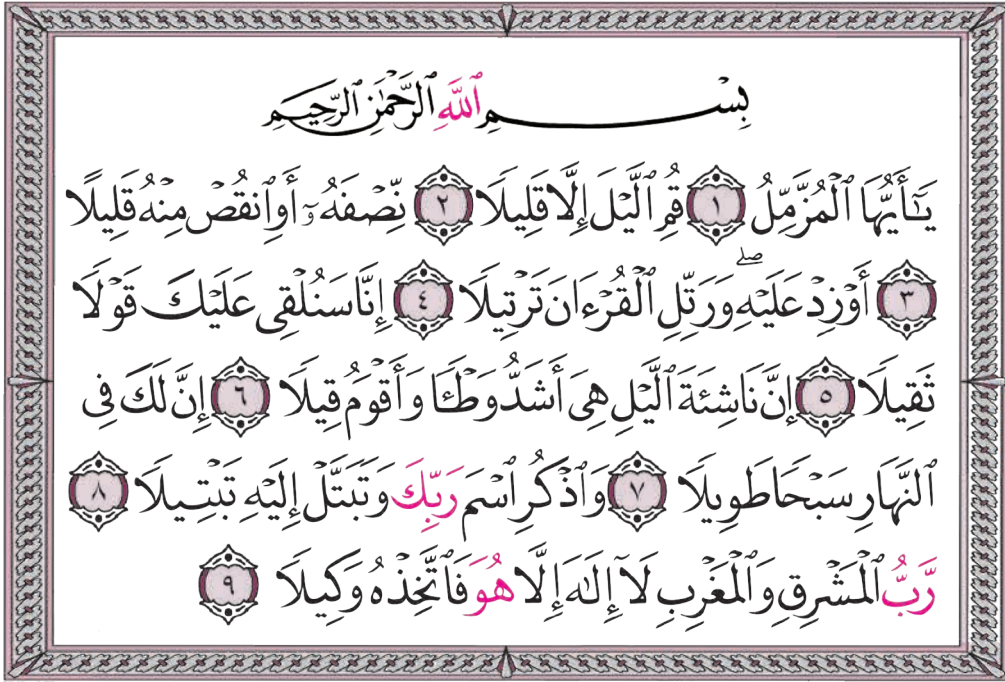 بِسْمِ ٱللَّهِ ٱلرَّحْمَٰنِ ٱلرَّحِيمِ
يَٰٓأَيُّهَا ٱلْمُزَّمِّلُ ١ قُمِ ٱلَّيْلَ إِلَّا قَلِيلًا ٢ نِّصْفَهُۥٓ أَوِ ٱنقُصْ مِنْهُ قَلِيلًا
٣ أَوْ زِدْ عَلَيْهِۖ وَرَتِّلِ ٱلْقُرْءَانَ تَرْتِيلًا ٤ إِنَّا سَنُلْقِى عَلَيْكَ قَوْلًا
ثَقِيلًا ٥ إِنَّ نَاشِئَةَ ٱلَّيْلِ هِىَ أَشَدُّ وَطْـًٔا وَأَقْوَمُ قِيلًا ٦ إِنَّ لَكَ فِى
ٱلنَّهَارِ سَبْحًا طَوِيلًا ٧ وَٱذْكُرِ ٱسْمَ رَبِّكَ وَتَبَتَّلْ إِلَيْهِ تَبْتِيلًا ٨
رَّبُّ ٱلْمَشْرِقِ وَٱلْمَغْرِبِ لَآ إِلَٰهَ إِلَّا هُوَ فَٱتَّخِذْهُ وَكِيلًا ٩